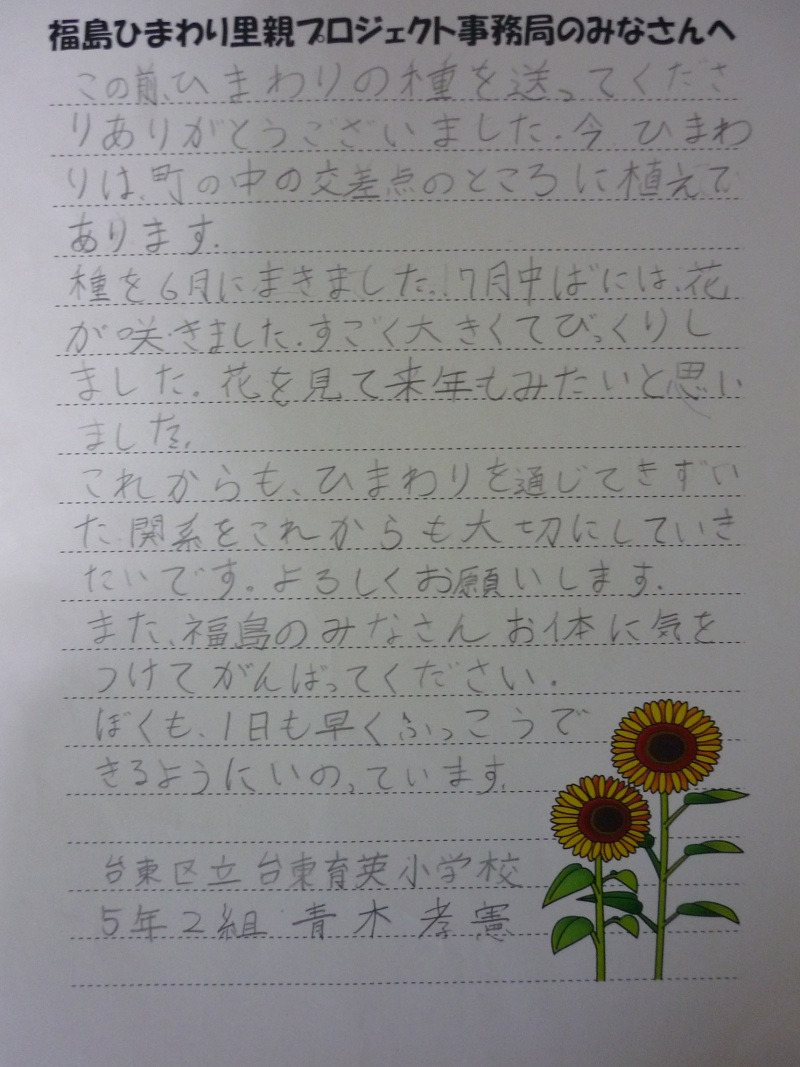 福島ひまわり里親プロジェクト事務局のみなさんへ
この前、ひまわりの種を送ってくださ
りありがとうございました。今、ひまわ
りは、町の中の交差点のところに植えて
あります。
種を6月にまきました。7月中ばには、花
が咲きました。すごく大きくてびっくりし
ました。花を見て来年もみたいと思い
ました。
これからも、ひまわりを通じてきずい
た関系をこれからも大切にしていき
たいです。よろしくお願いします。
また、福島のみなさんお体に気を
つけてがんばってください。
ぼくも、1日も早くふっこうで
きるようにいのっています。
台東区立台東育英小学校
5年2組 青木孝憲